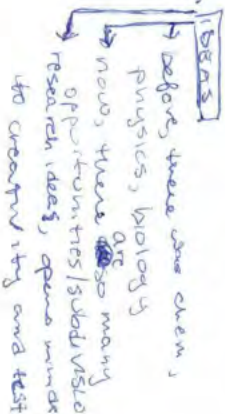 IDEAS
before, there was chem,
physics, biology
now, there are so many
oppuitunities/subdivisio
research ideas, opens minds
to creativity and test